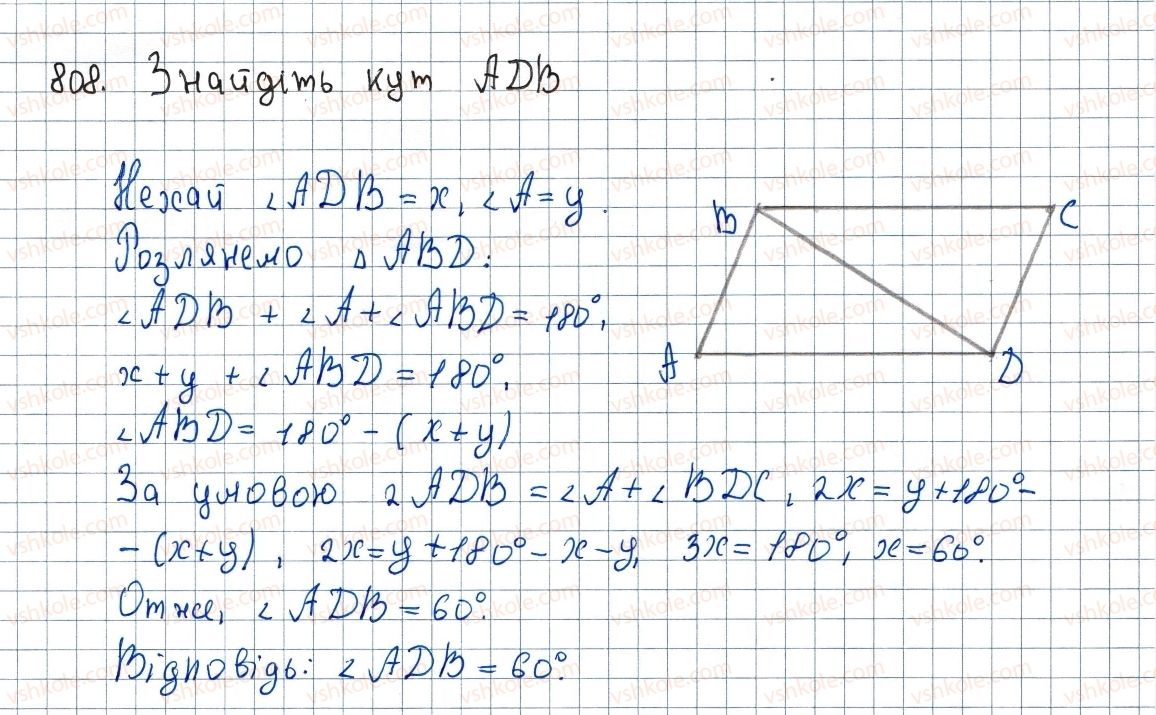 808. Знайдіть кут ADB
Нехай ∠ADB = x, ∠A = y.
Розлянемо △ABD:
∠ADB + ∠A + ∠ABD = 180°,
x + y + ∠ABD = 180°,
∠ABD = 180° - (x + y)
За умовою 2 ADB = ∠A + ∠BDC, 2x = y + 180° -
- (x + y), 2x = y + 180° - x - y, 3x = 180°, x = 60°.
Отже, ∠ADB = 60°.
Відповідь: ∠ADB = 60°.
B
C
A
D
vshkole.com